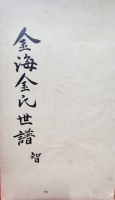 金海金氏世譜
智